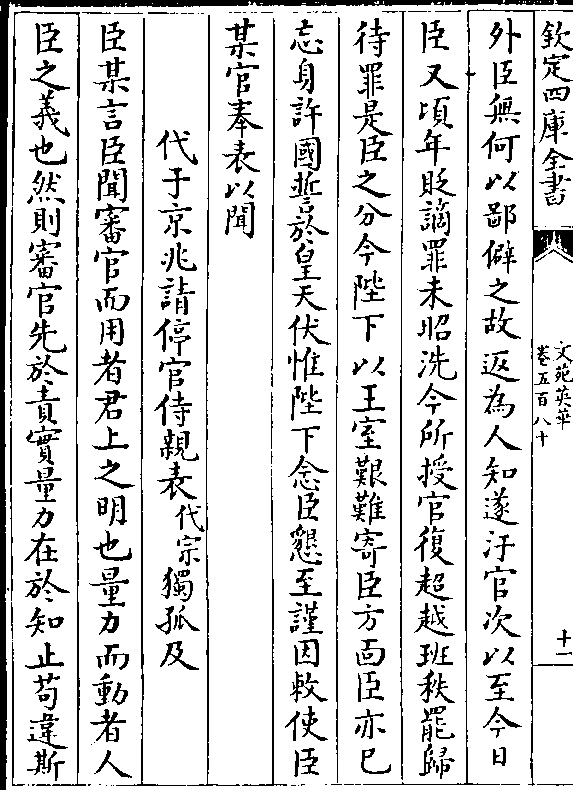 欽定四庫全書
文苑英華
卷五百八十
十一
外臣無何以鄙僻之故返為人知遂汙官次以至今日
臣又頃年貶謫罪未昭洗今所授官復超越班秩罷歸
待罪是臣之分今陛下以王室艱難寄臣方面臣亦已
忘身許國誓於皇天伏惟陛下念臣懇至謹因敕使臣
某官奉表以聞
代于京兆請停官侍親表代宗獨孤及
臣某言臣聞審官而用者君上之明也量力而動者人
臣之義也然則審官先於責實量力在於知止苟違斯